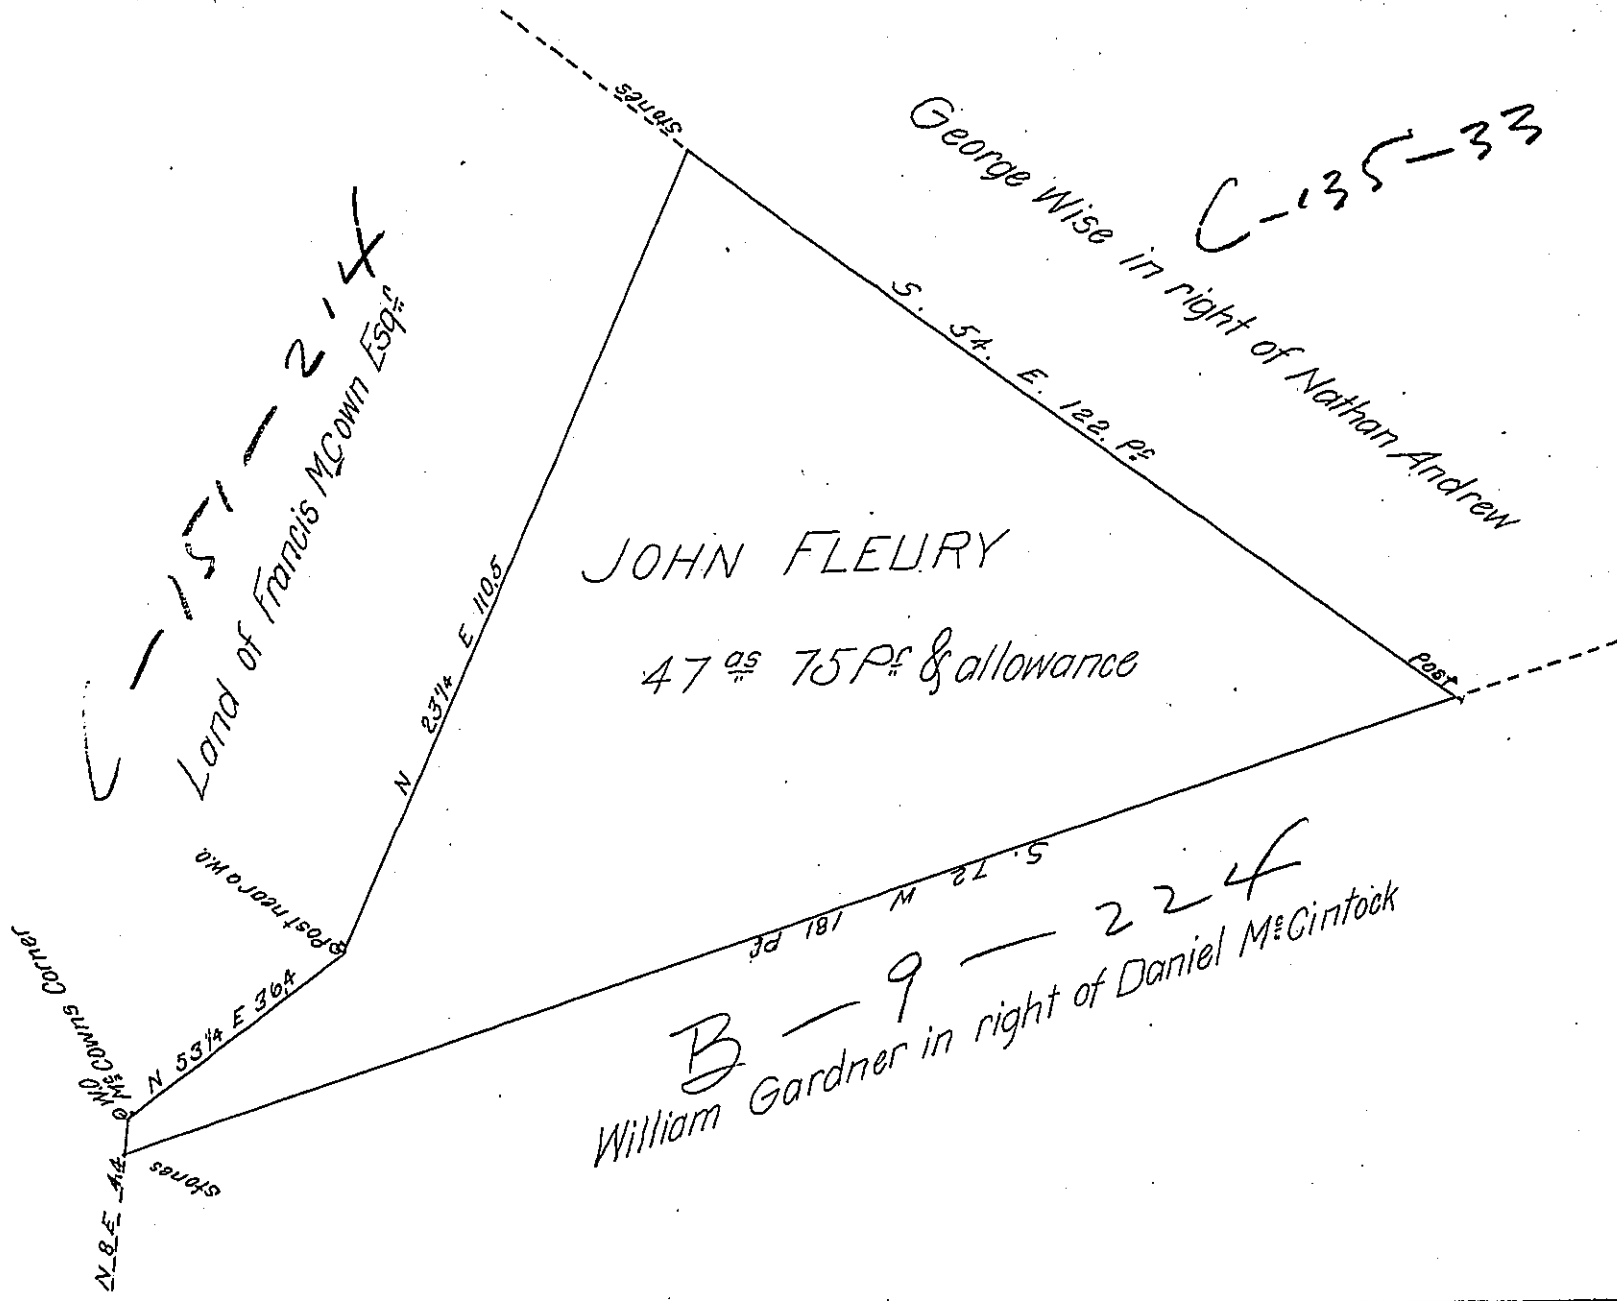 Stones
George Wise in right of Nathan Andrew
C-135-33
C-151-214
Land of Francis McCown Esqr
S. 54. E. 122. Ps
JOHN FLEURY
47 as 75 Ps & allowance
N 23 1/4 E 110.5
Post
Post near a W.O.
S. 72 W 181 Ps
B-9-224
William Gardner in right of Daniel McCintock
N 53 1/4 E 36.4
W.O.
McCowns Corner
Stones
N 8 E 4.4